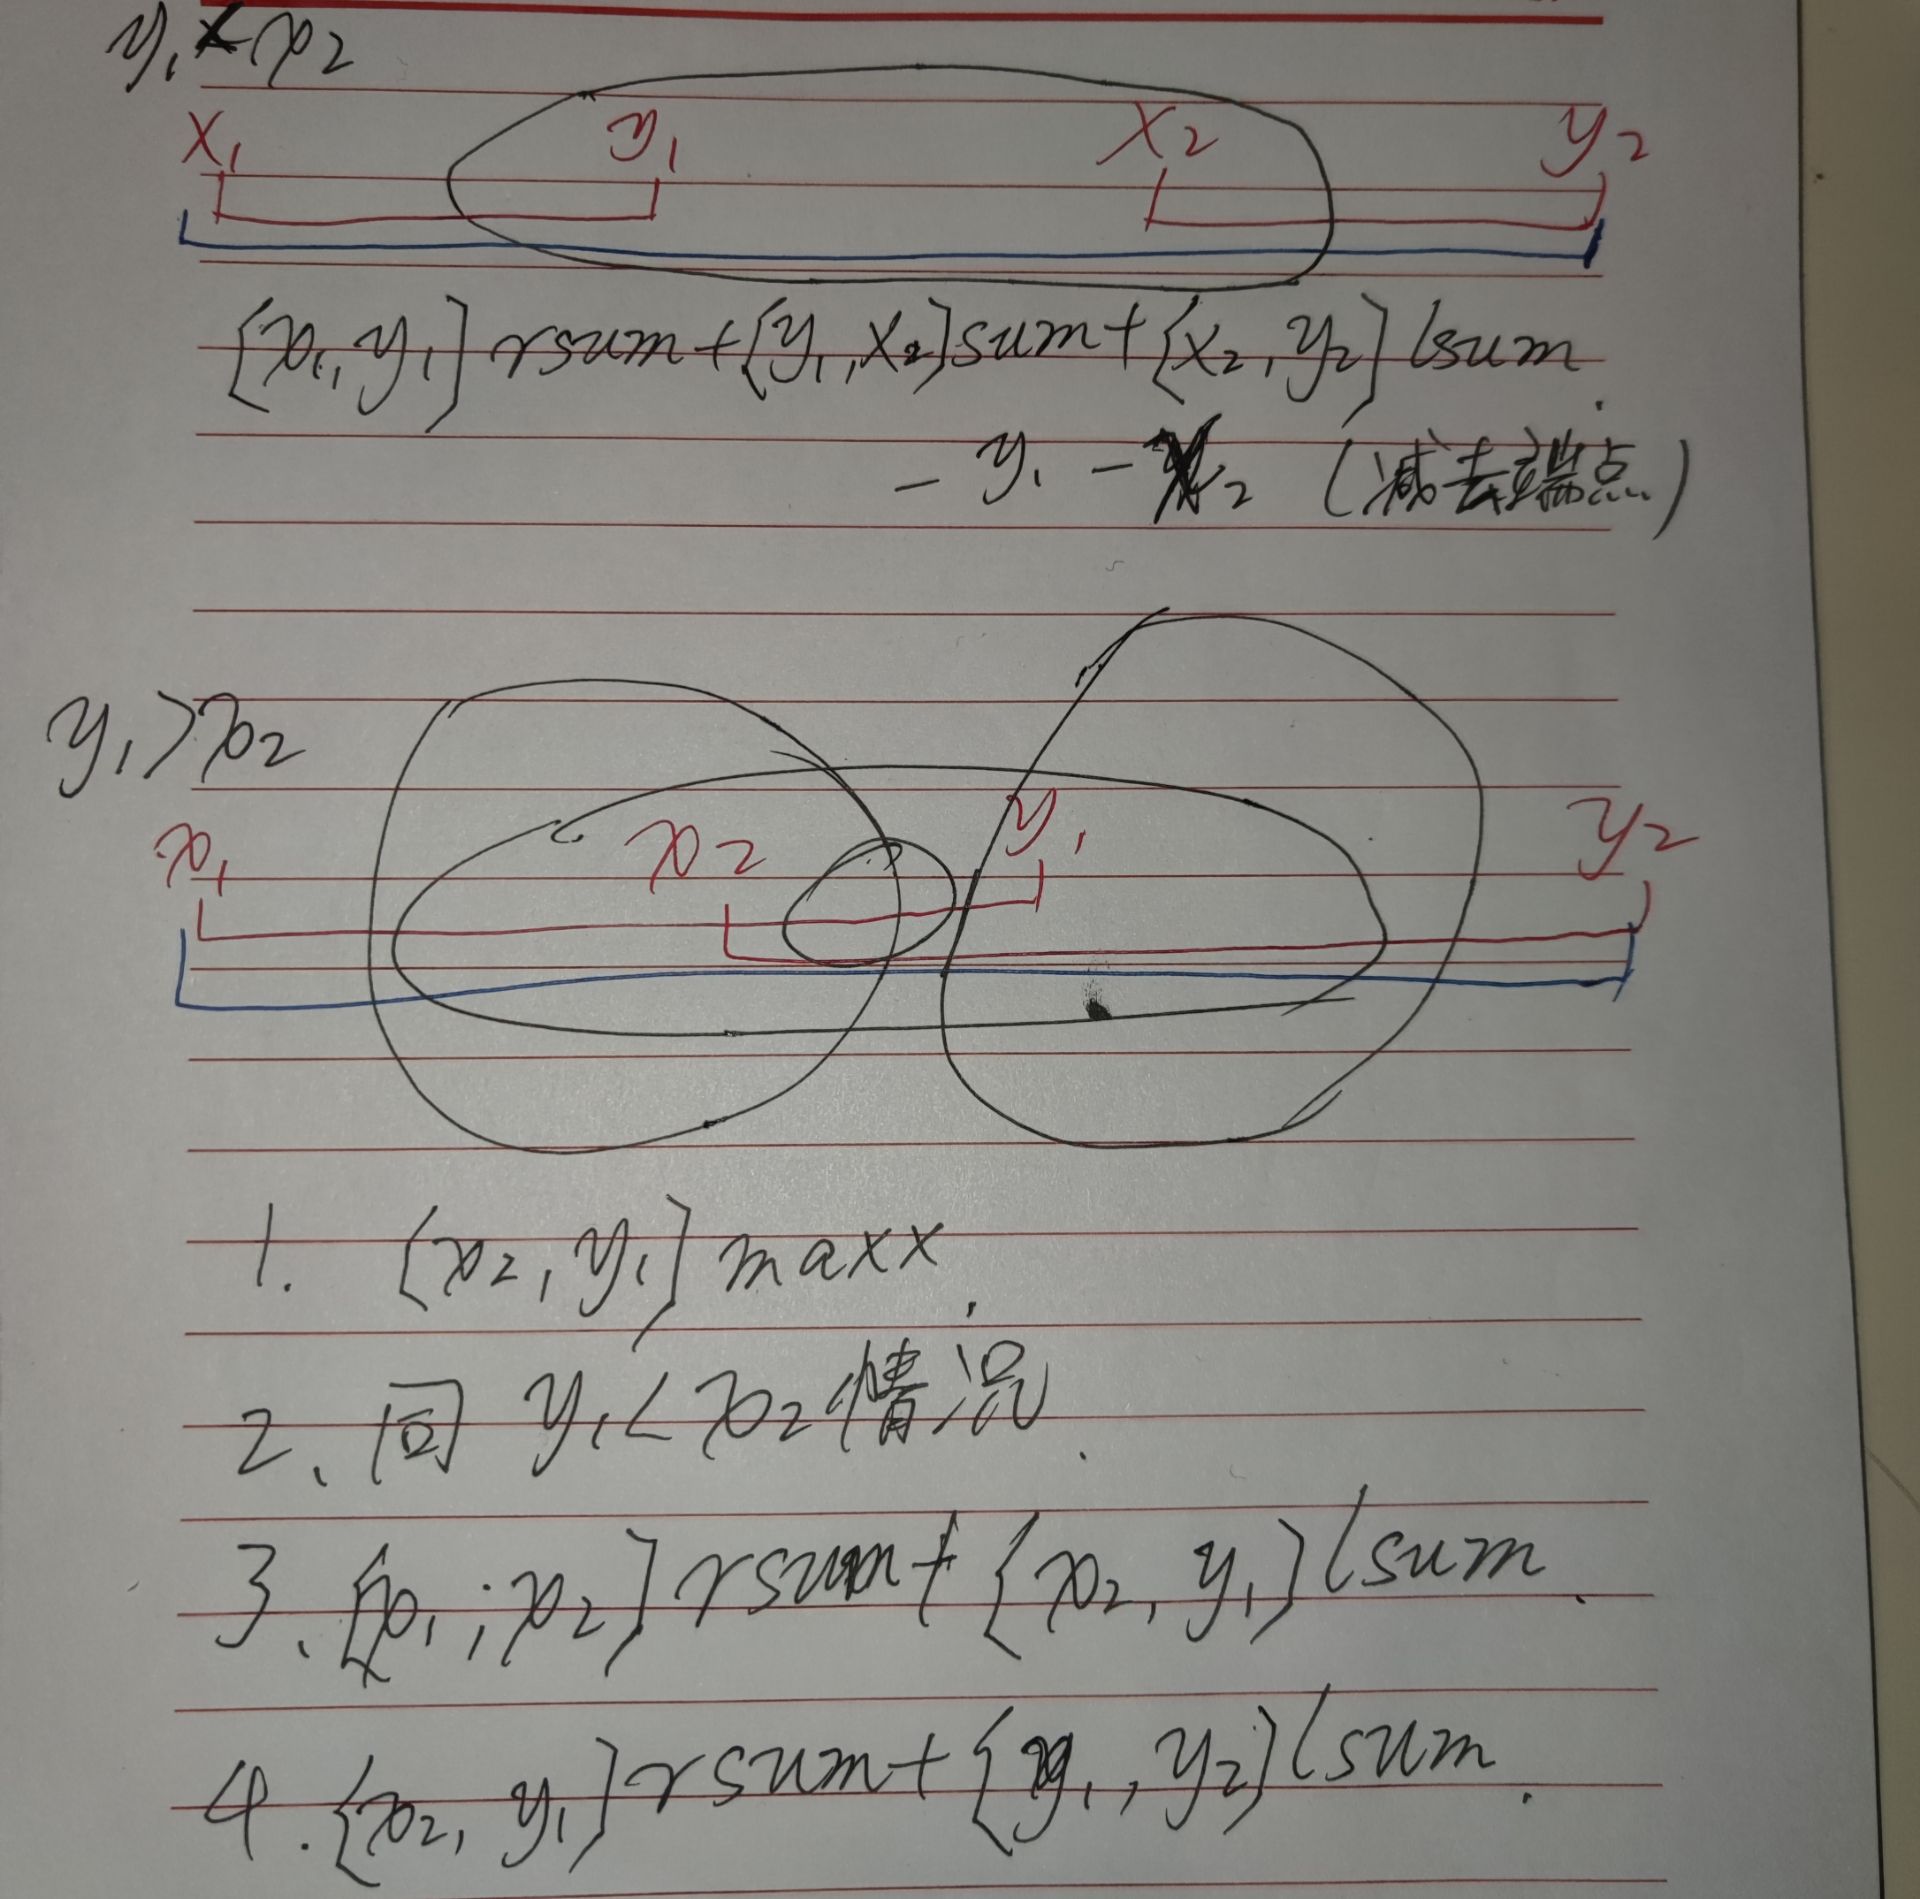 y₁<x₂
x₁ y₁ x₂ y₂
[x₁,y₁]rsum+[y₁,x₂]sum+[x₂,y₂]lsum.
-y₁-x₂(减去端点)
y₁>x₂
x₁ x₂ y₁ y₂
1. [x₂,y₁]maxx.
2、同y₁<x₂情况.
3、[x₁,x₂]rsum+[x₂,y₁]lsum.
4.[x₂,y₁]rsum+[y₁,y₂]lsum.